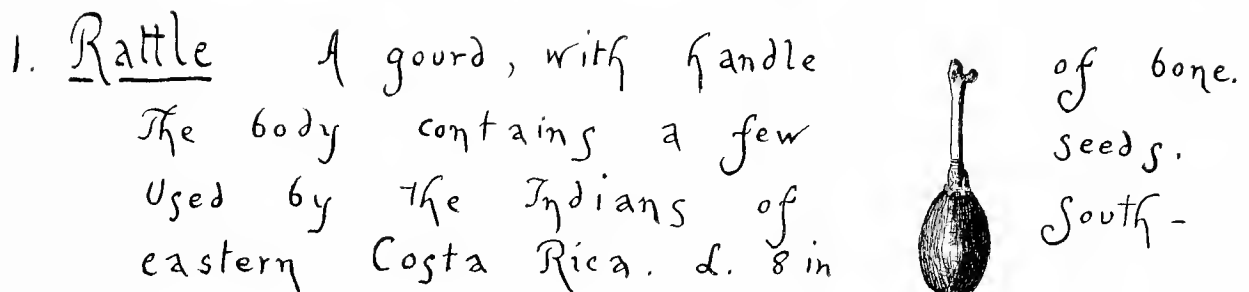 1. Rattle A gourd, with handle of bone.
The body contains a few seeds.
Used by the Indians of South-
eastern Costa Rica. L. 8 in